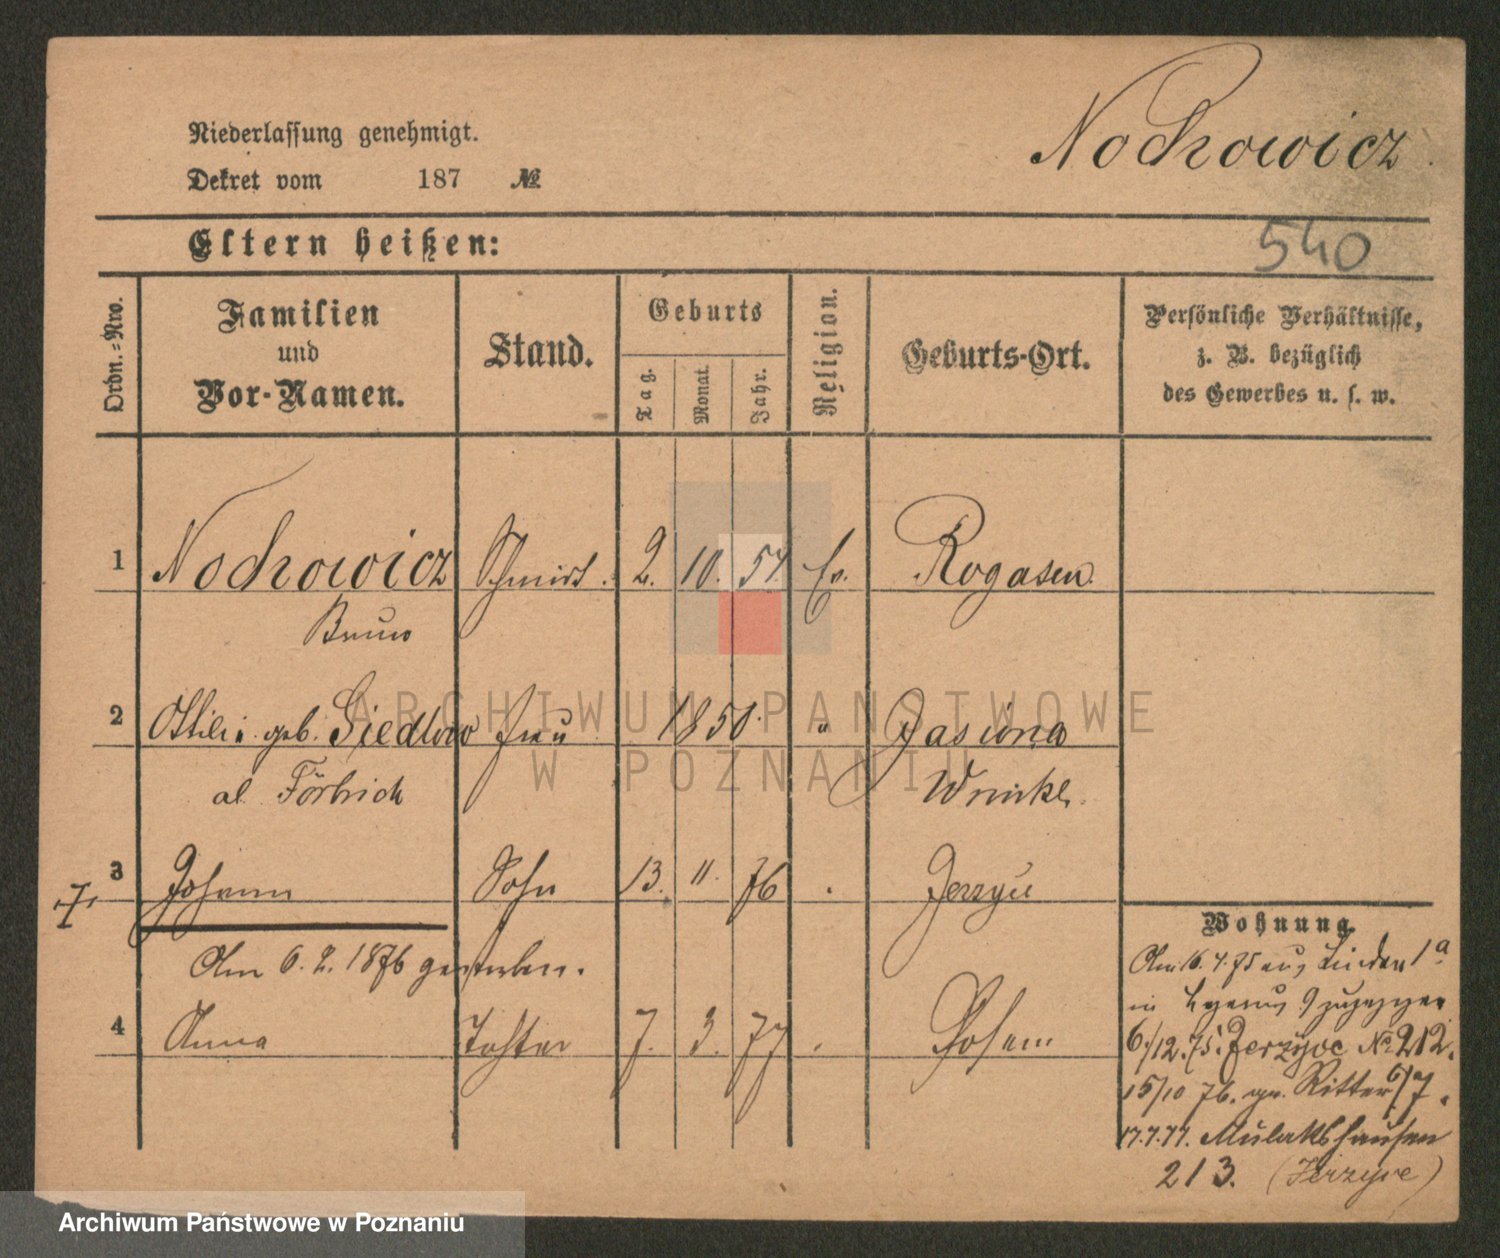 Nochowicz.
Niederlassung genehmigt.
Dekret vom 187 №
Eltern heißen:
540
Ordn.-Nro.
Familien
und
Vor-Namen.
Stand.
Geburts
Tag.
Monat.
Jahr.
Religion.
Geburts-Ort.
Persönliche Verhältnisse,
z. B. bezüglich
des Gewerbes u. s. w.
1 Nochowicz Schmidt. 2. 10. 51. Ev. Rogasen
Bruno
2 Ottilie geb. Siedlow Frau 1850. " Jasiona
al
3 Johann Sohn 13. 11. 76 Jerzyce
Am 6. 2. 1876 gestorben.
4 Anna Tochter 7. 3. 77 Posen
Wohnung.
Am 16.4.75 aus Linden 1a
in zugezogen
6/12.75. Jerzyce No 212.
15/10 76. Ritter 6/7.
17.7.77. Mulakshausen
213. (Jerzyce)
ARCHIWUM PAŃSTWOWE
W POZNANIU
Archiwum Państwowe w Poznaniu